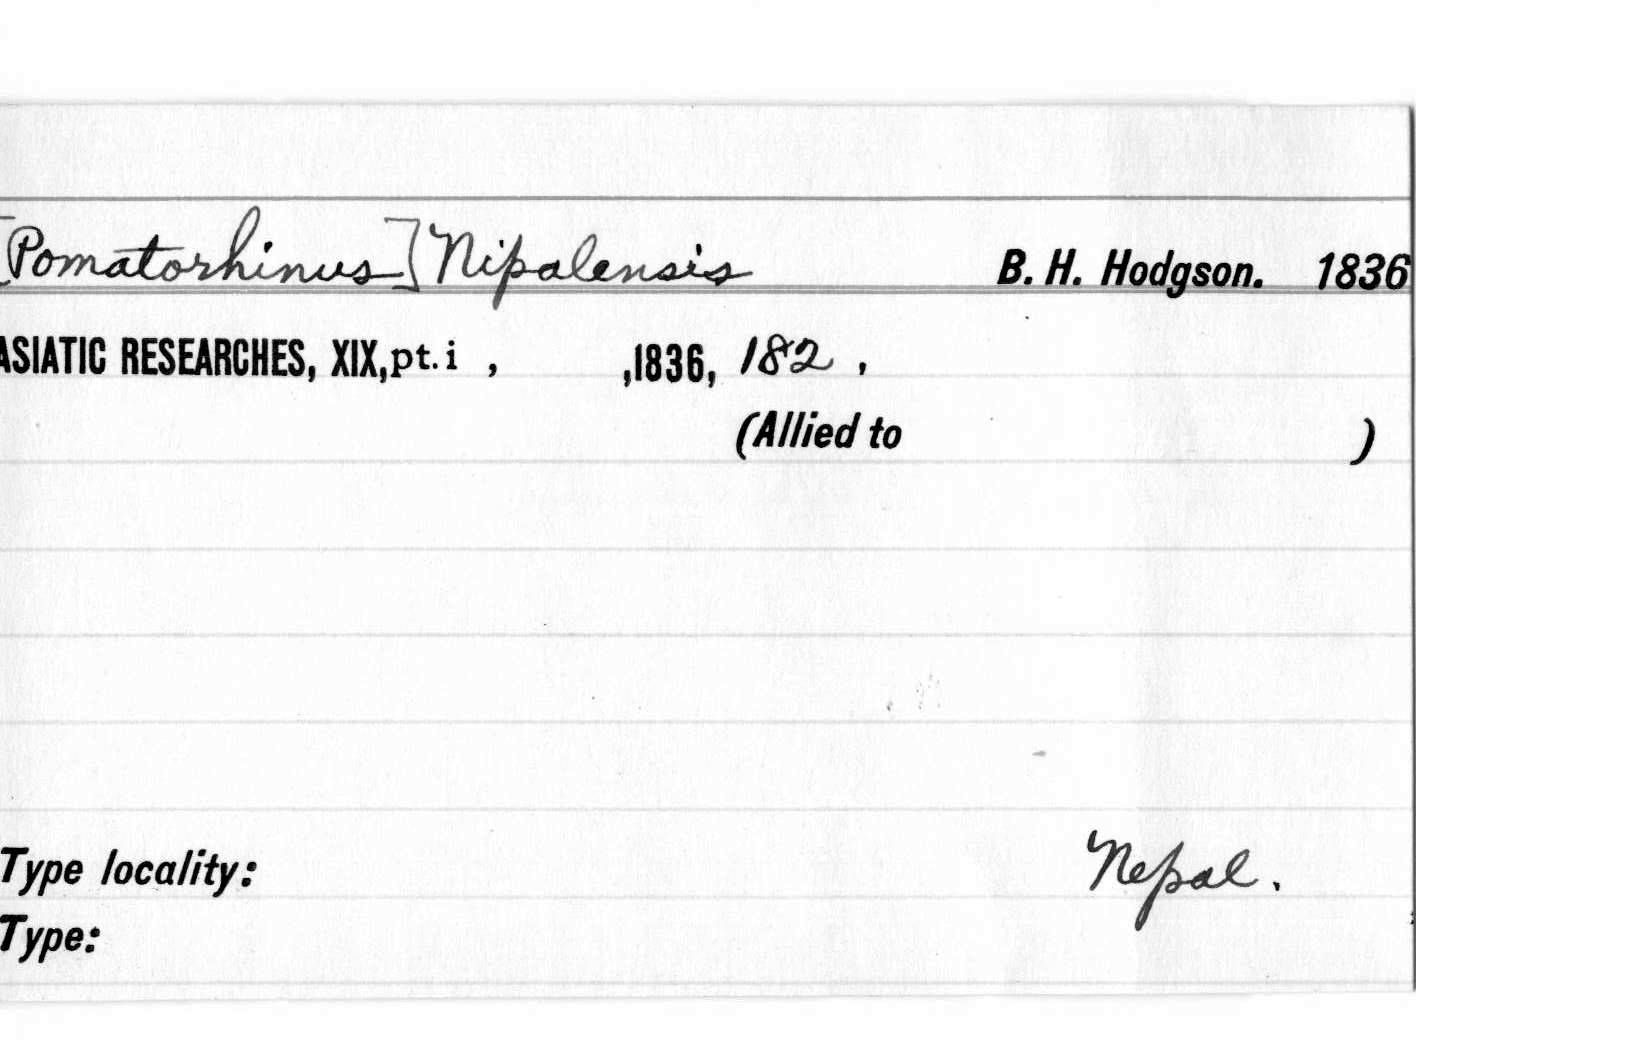 [Pomatorhinus] Nipalensis B. H. Hodgson. 1836
ASIATIC RESEARCHES, XIX, pt. i , ,1836, 182 ,
(Allied to )
Type locality: Nepal.
Type: